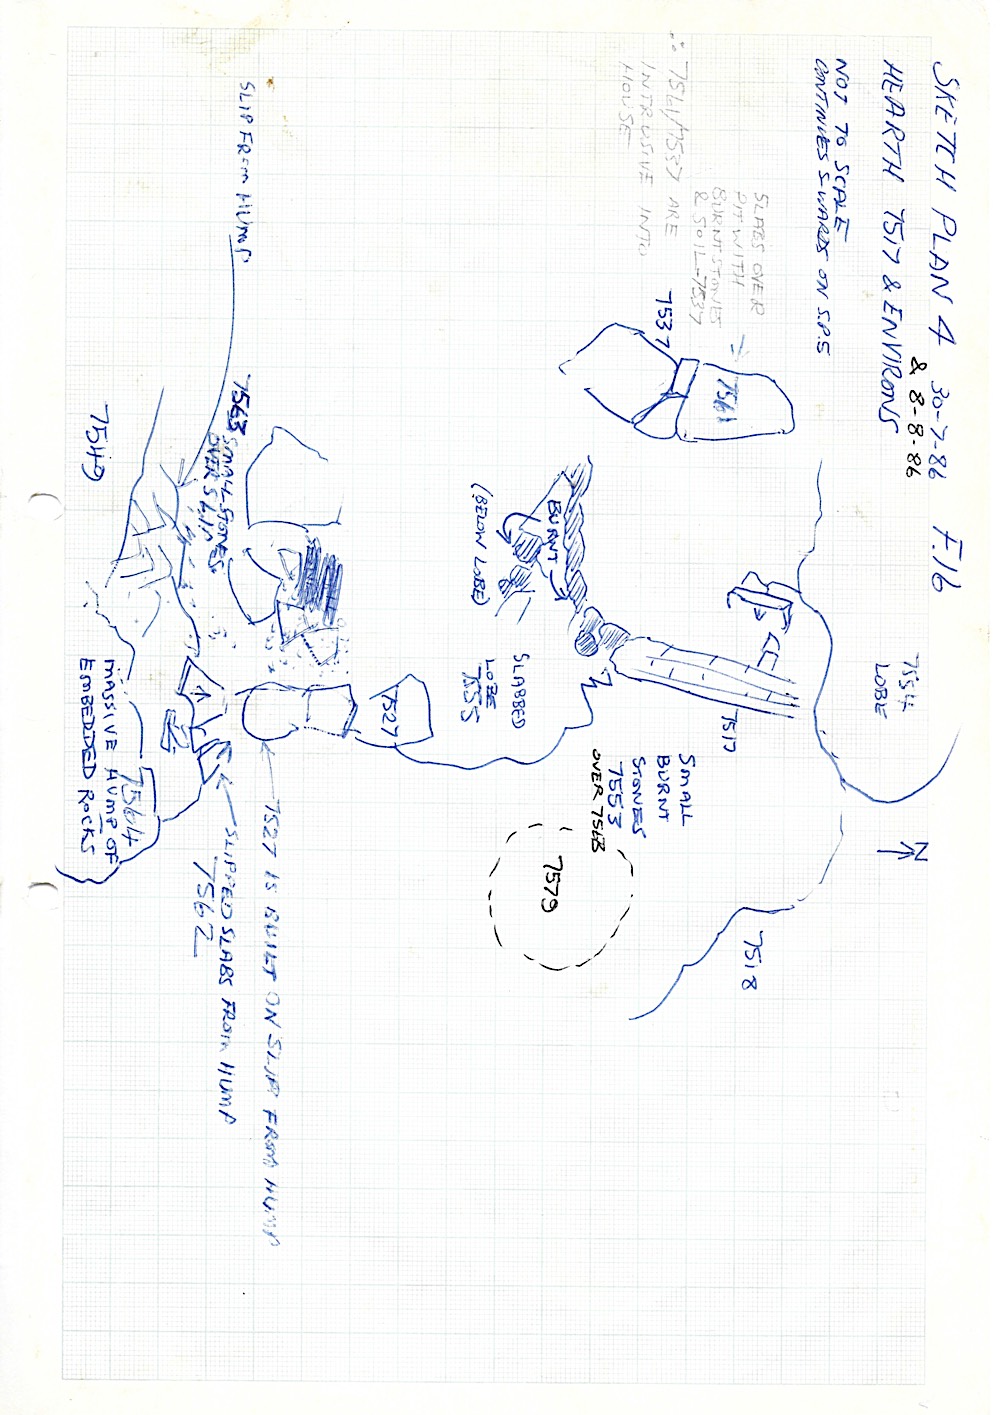 SKETCH PLAN 4 30-7-86 F.16
& 8-8-86
HEARTH 7517 & ENVIRONS
NOT TO SCALE
CONTINUES S-WARDS ON S.P.5
SLABS OVER
PIT WITH
BURNT STONES
& SOIL - 7537
∴ 7561/7537 ARE
INTRUSIVE INTO
HOUSE
7537
7561
7554
LOBE
N
7518
7517
BURNT
(BELOW LOBE)
SLABBED
LOBE
7555
SMALL
BURNT
STONES
7553
OVER 7568
7579
7527
7563
SMALL STONES
OVER SLIP
SLIP FROM HUMP
7527 IS BUILT ON SLIP FROM HUMP
SLIPPED SLABS FROM HUMP
7562
7549
7564
MASSIVE HUMP OF
EMBEDDED ROCKS